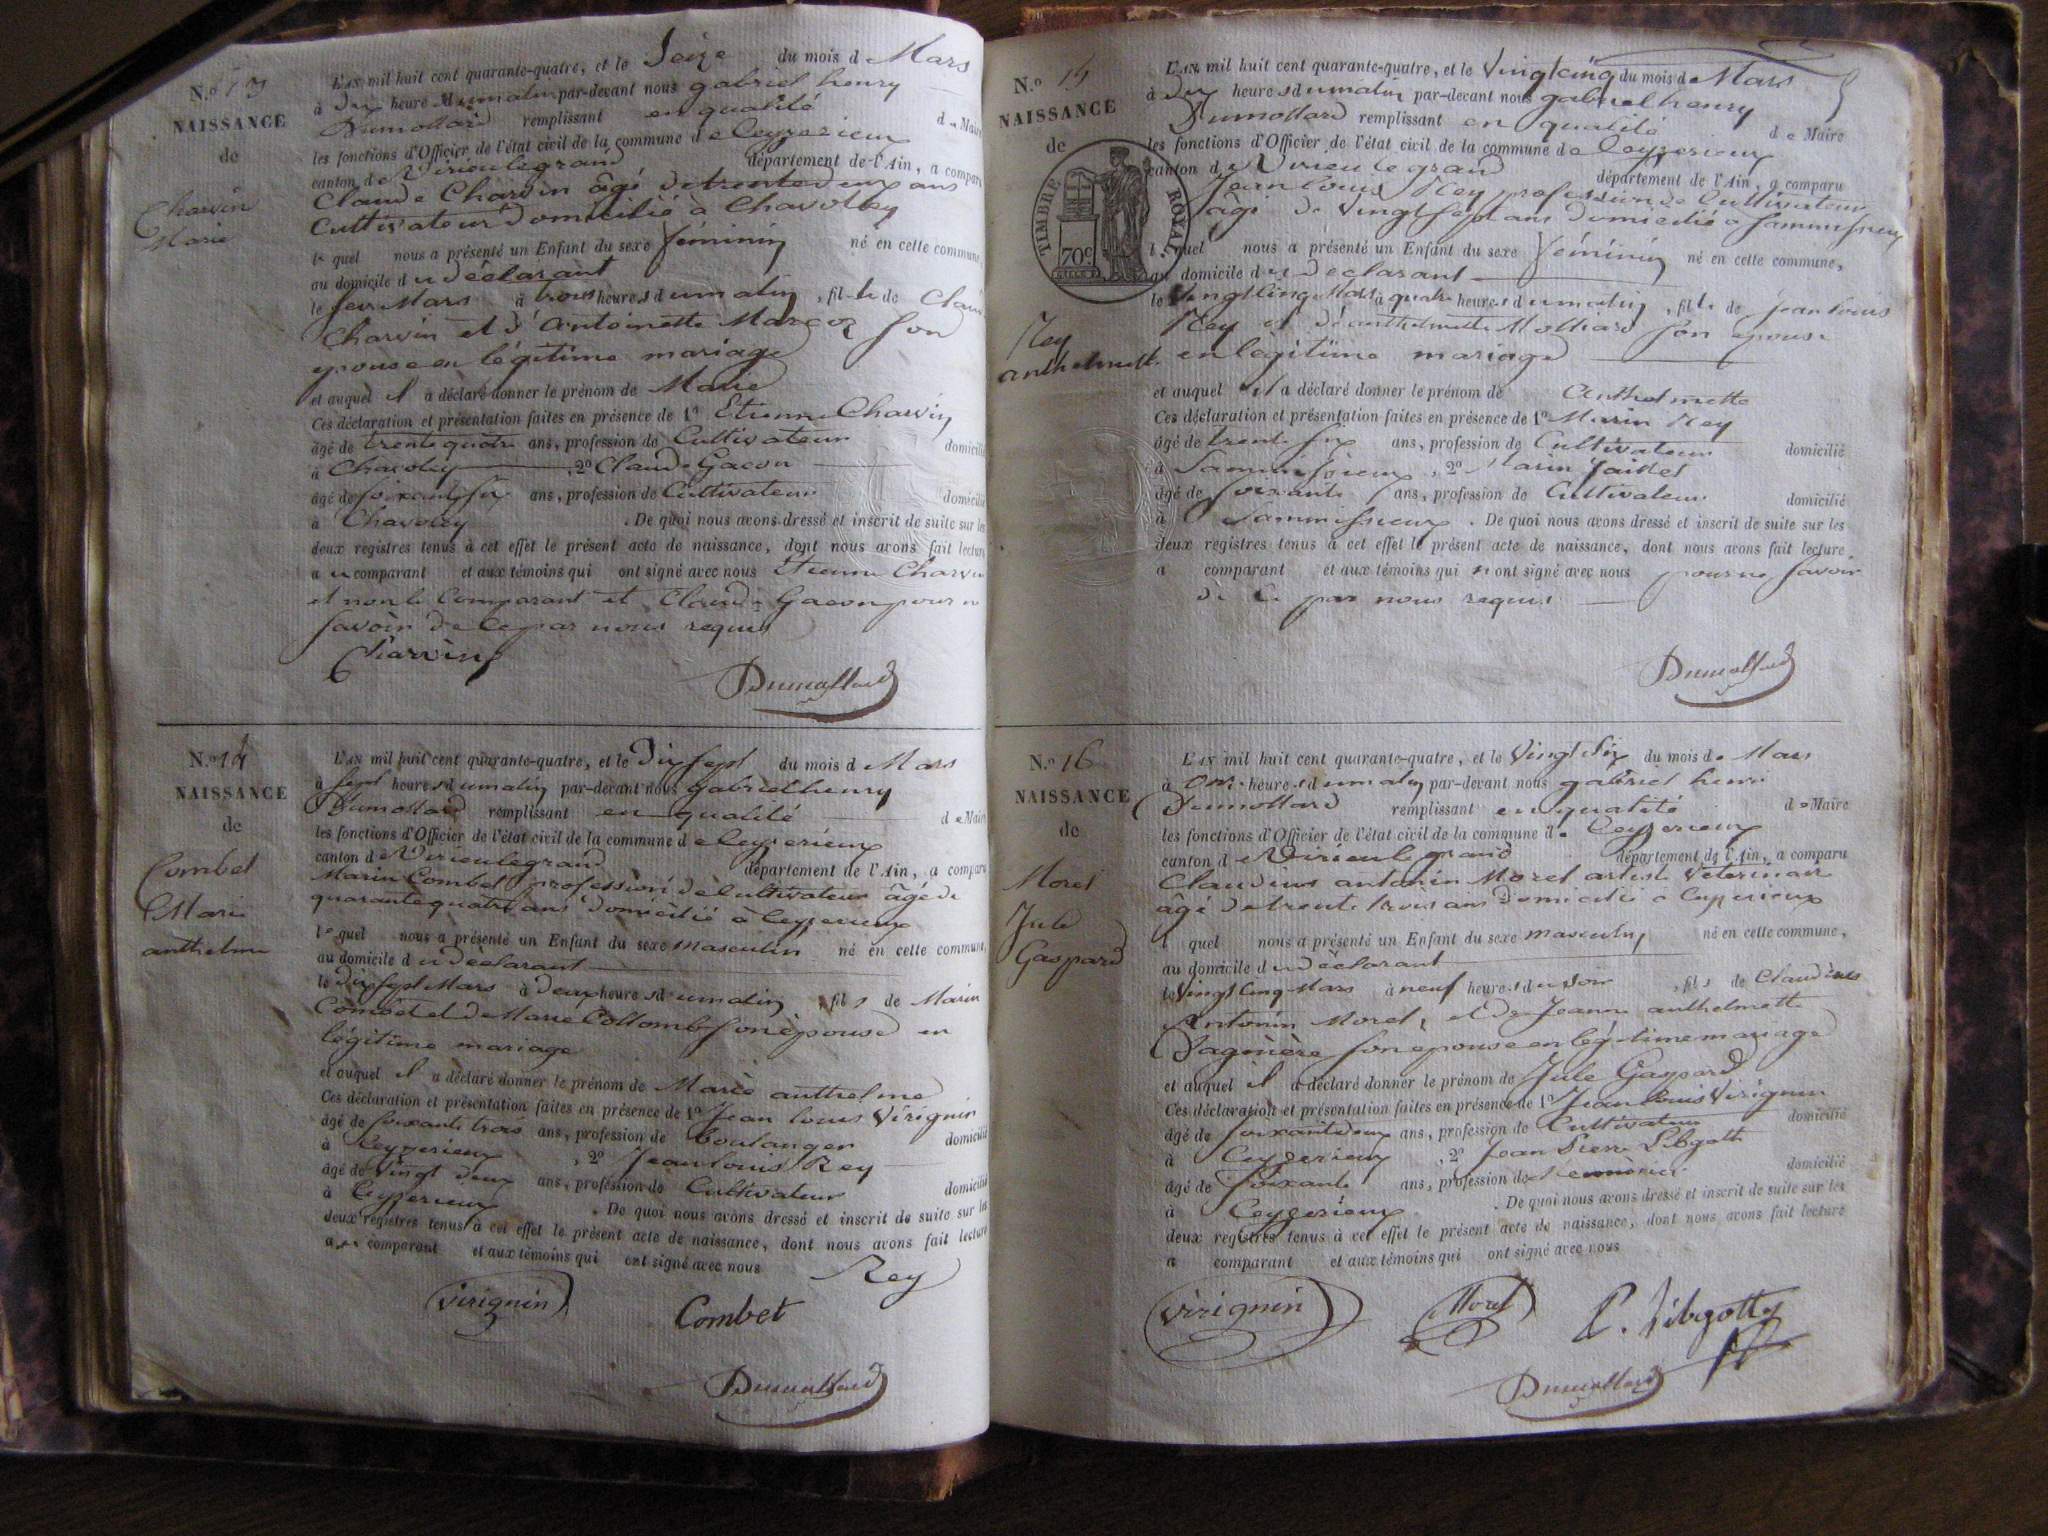 N.o 13
NAISSANCE
de
Charvin
Marie
L'AN mil huit cent quarante-quatre, et le Seize du mois d Mars
à dix heures du matin par-devant nous gabriel henry
Dumollard remplissant en qualité de Maire
les fonctions d'Officier de l'état civil de la commune de Ceyzerieux
canton de Virieulegrand département de l'Ain, a comparu
Claude Charvin âgé de trente deux ans
Cultivateur domicilié à Chavoley
lequel nous a présenté un Enfant du sexe féminin né en cette commune,
au domicile du déclarant
le Mars à trois heures du matin, fille de
Charvin et d'antoinette son
epouse en légitime mariage
et auquel il a déclaré donner le prénom de Marie
Ces déclaration et présentation faites en présence de 1o Etienne Charvin
âgé de trente quatre ans, profession de Cultivateur domicilié
à Chavoley, 2o Claude Gacon
âgé de soixante six ans, profession de Cultivateur domicilié
à Chavoley. De quoi nous avons dressé et inscrit de suite sur les
deux registres tenus à cet effet le présent acte de naissance, dont nous avons fait lecture
au comparant et aux témoins qui ont signé avec nous Etienne Charvin
et non le Comparant et Claude Gacon pour n
savoir de ce par nous requis
Charvin
Dumollard
N.o 14
NAISSANCE
de
Combet
Marie
anthelme
L'AN mil huit cent quarante-quatre, et le Dix sept du mois d Mars
à sept heures du matin par-devant nous Gabriel henry
Dumollard remplissant en qualité de Maire
les fonctions d'Officier de l'état civil de la commune de Ceyzerieux
canton de Virieulegrand département de l'Ain, a comparu
Marin Combet profession de Cultivateur âgé de
quarante quatre ans domicilié à Ceyzerieux
lequel nous a présenté un Enfant du sexe masculin né en cette commune,
au domicile du déclarant
le dix sept Mars à deux heures du matin, fils de Marin
Combet et de Marie Collomb son épouse en
légitime mariage
et auquel il a déclaré donner le prénom de Marie anthelme
Ces déclaration et présentation faites en présence de 1o Jean louis Virignin
âgé de soixante trois ans, profession de boulanger domicilié
à Ceyzerieux, 2o Jean louis Rey
âgé de vingt deux ans, profession de Cultivateur domicilié
à Ceyzerieux. De quoi nous avons dressé et inscrit de suite sur les
deux registres tenus à cet effet le présent acte de naissance, dont nous avons fait lecture
au comparant et aux témoins qui ont signé avec nous
Rey
Virignin
Combet
Dumollard
N.o 15
NAISSANCE
de
TIMBRE ROYAL
70c
Rey
anthelmette
L'AN mil huit cent quarante-quatre, et le Vingt cinq du mois de Mars
à dix heures du matin par-devant nous gabriel henry
Dumollard remplissant en qualité de Maire
les fonctions d'Officier de l'état civil de la commune de Ceyzerieux
canton de Virieu le grand département de l'Ain, a comparu
Jean louis Rey profession de Cultivateur
âgé de vingt sept ans domicilié a
lequel nous a présenté un Enfant du sexe féminin né en cette commune,
au domicile du déclarant
le Vingt Cinq Mars à quatre heures du matin, fille de Jean louis
Rey et d'anthelmette Molliard son epouse
en légitime mariage
et auquel il a déclaré donner le prénom de Anthelmette
Ces déclaration et présentation faites en présence de 1o Marin Rey
âgé de trente six ans, profession de Cultivateur domicilié
à, 2o Marin
âgé de soixante ans, profession de Cultivateur domicilié
à. De quoi nous avons dressé et inscrit de suite sur les
deux registres tenus à cet effet le présent acte de naissance, dont nous avons fait lecture
a comparant et aux témoins qui n ont signé avec nous pour ne savoir
de ce par nous requis
Dumollard
N.o 16
NAISSANCE
de
Morel
Jule
Gaspard
L'AN mil huit cent quarante-quatre, et le Vingt Six du mois de Mars
à onze heures du matin par-devant nous gabriel henri
Dumollard remplissant en qualité de Maire
les fonctions d'Officier de l'état civil de la commune de Ceyzerieux
canton de Virieu le grand département de l'Ain, a comparu
Claudius antonin Morel artiste Veterinair
âgé de trente trois ans domicilié a Ceyzerieux
l quel nous a présenté un Enfant du sexe masculin né en cette commune,
au domicile du déclarant
le Vingt Cinq Mars à neuf heures du soir, fils de Claudius
Antonin Morel, et de Jeanne anthelmette
son epouse en légitime mariage
et auquel il a déclaré donner le prénom de Jule Gaspard
Ces déclaration et présentation faites en présence de 1o Jean louis Virignin
âgé de soixante deux ans, profession de Cultivateur domicilié
à Ceyzerieux, 2o Jean Pierre
âgé de soixante ans, profession de domicilié
à Ceyzerieux. De quoi nous avons dressé et inscrit de suite sur les
deux registres tenus à cet effet le présent acte de naissance, dont nous avons fait lecture
a comparant et aux témoins qui ont signé avec nous
Virignin
Morel
Dumollard